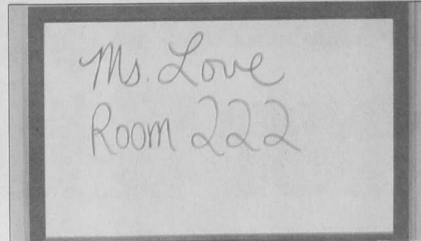 Ms. Love
Room 222